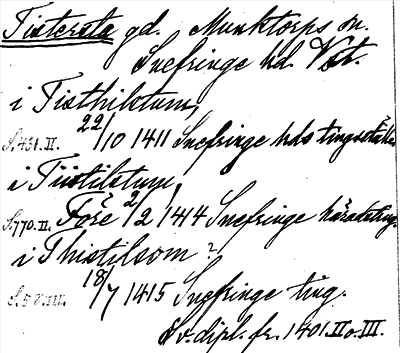 Tistersta gd. Munktorps sn.
Snefringe hd. Vst.
i Tisthilstum,
S. 431. II. 22/10 1411 Snefringe hds tingsställe
i Tiistilstum
S. 770. II. Före 2/2 1414 Snefringe häradsting.
i Thistilsom?
18/7 1415 Snefringe ting.
Sv. dipl. fr. 1401. II o. III.